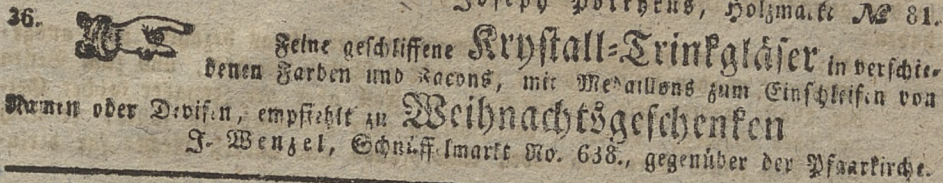 Joseph Porthens, Holzmarkt № 81.
36.
Feine geschliffene Krystall=Trinkgläser in verschie=
denen Farben und Facons, mit Medaillons zum Einschleifen von
Namen oder Devisen, empfiehlt zu Weihnachtsgeschenken
J. Wenzel, Schnüffelmarkt No. 638., gegenüber der Pfaarkirche.